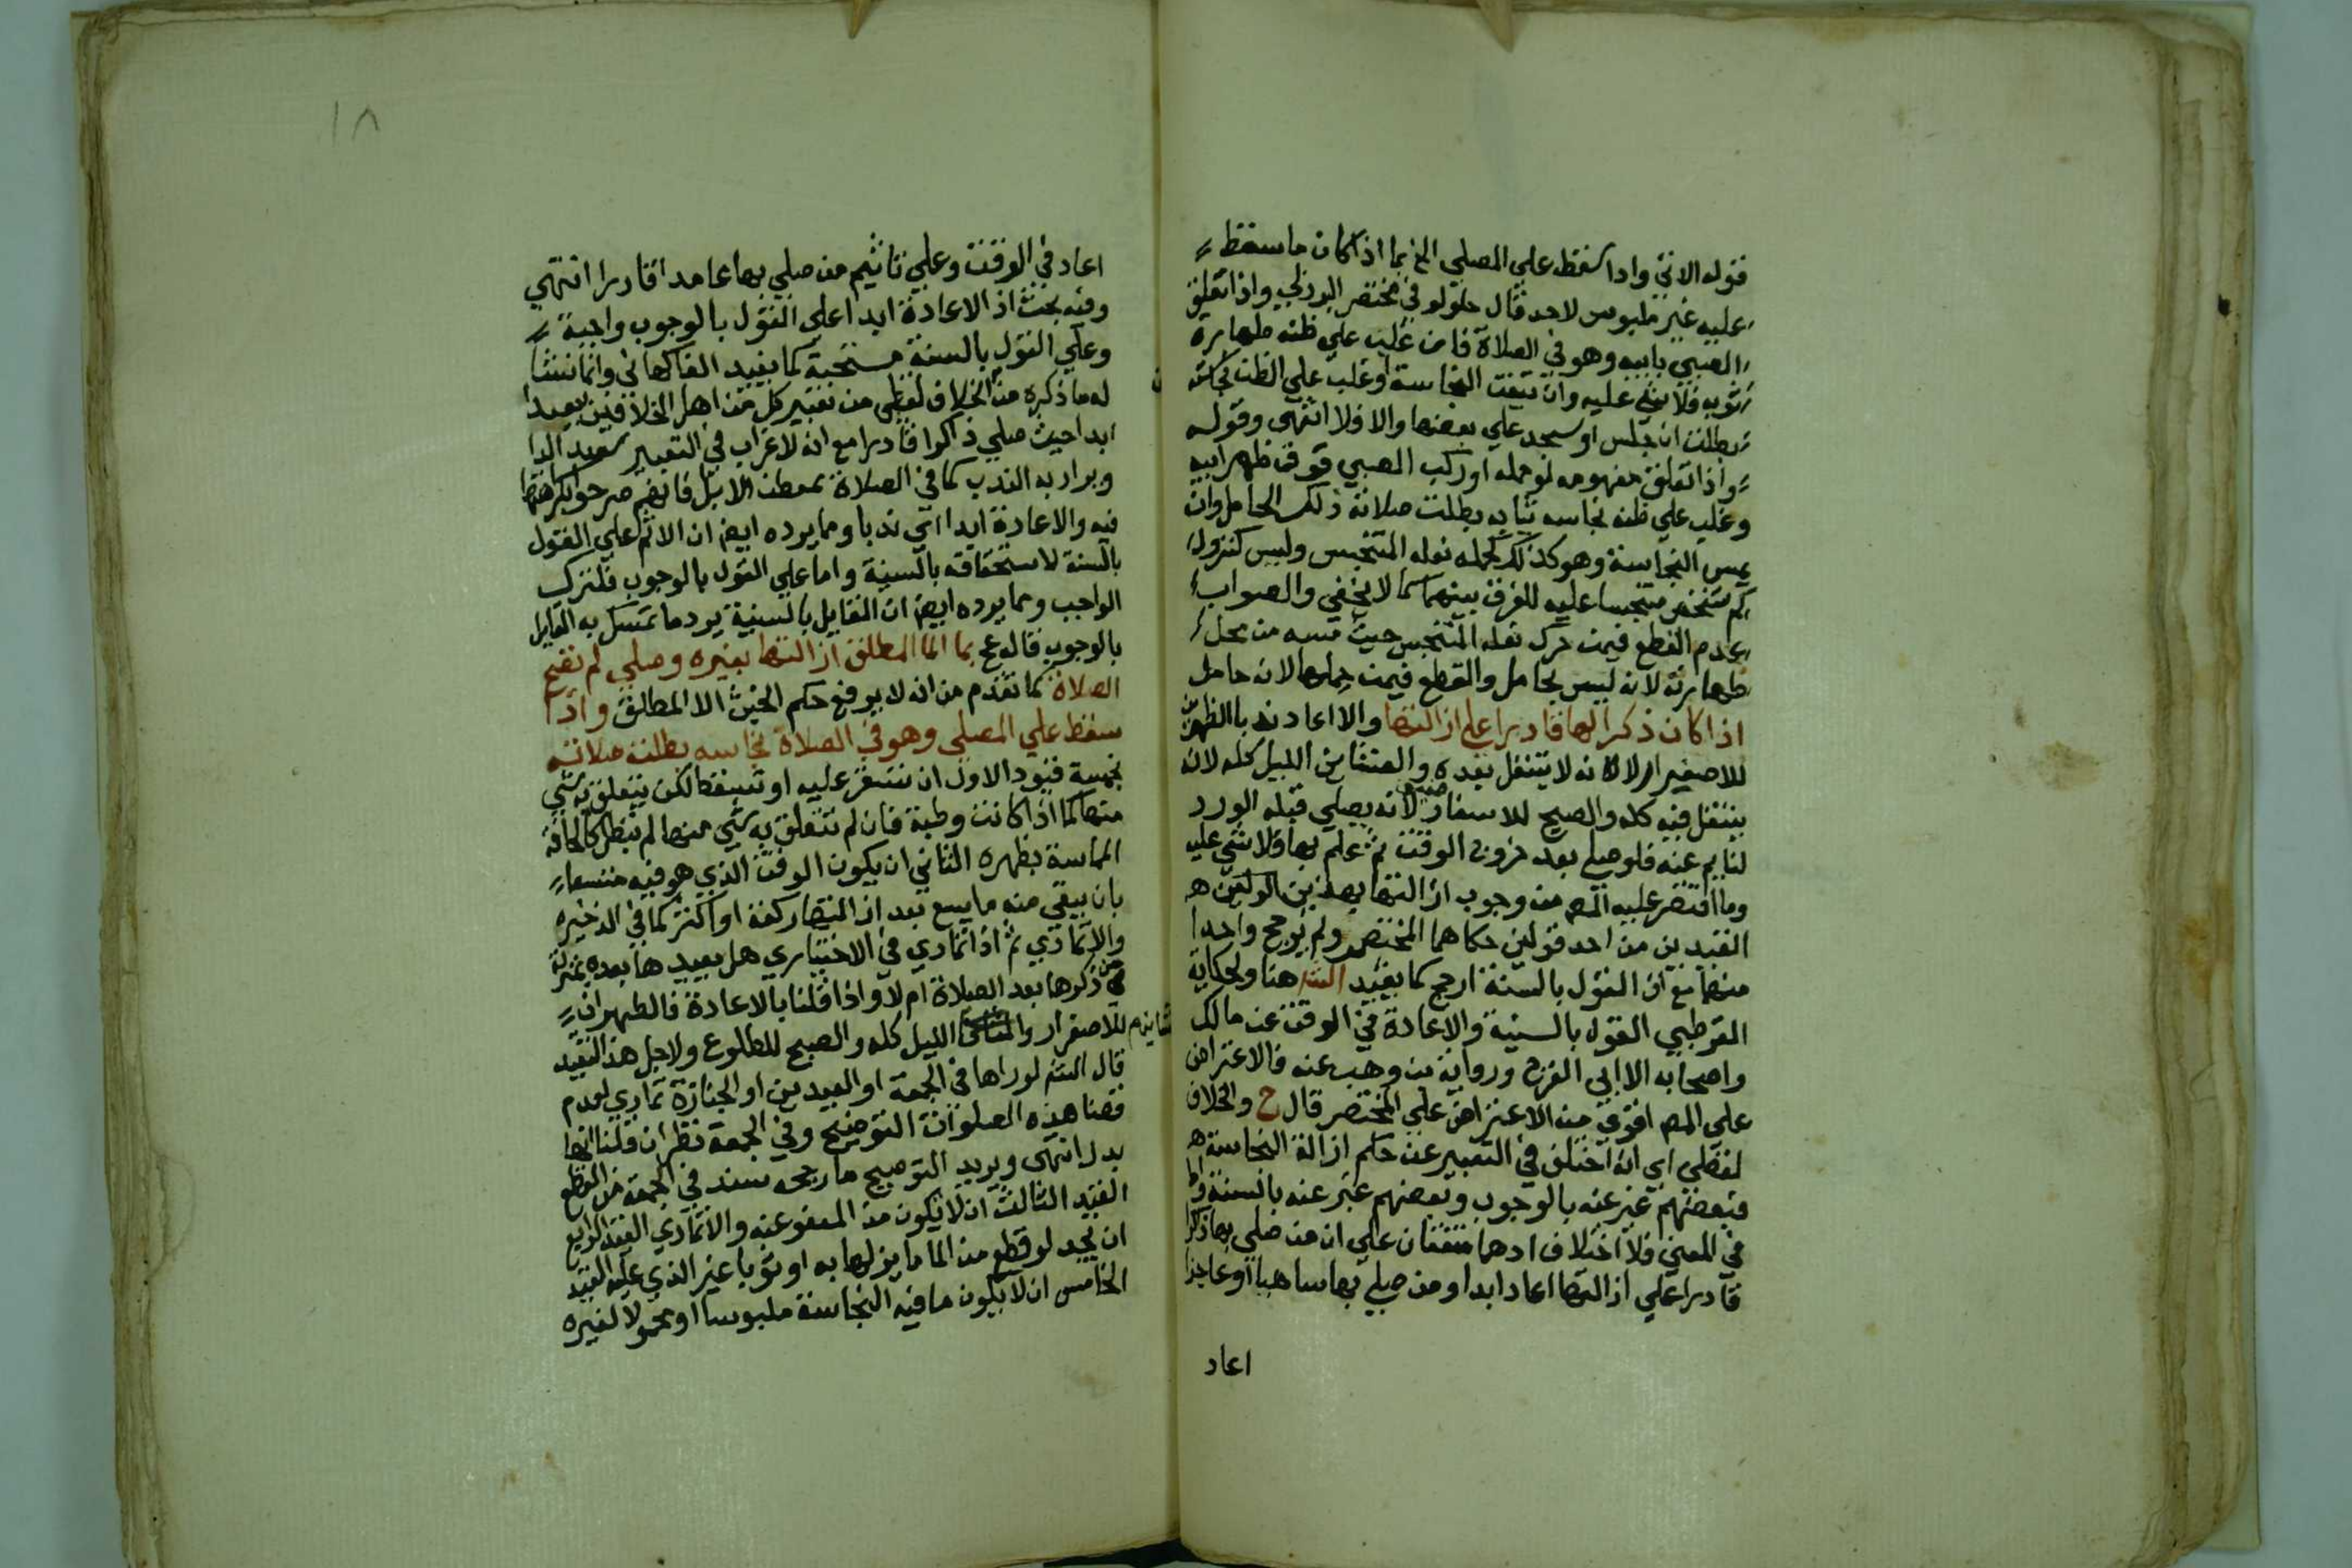 قوله الاتي واذا سقط علي المصلي الخ بما اذا كان ما سقط
عليه غير ملبوس لاحد قال حلولو في مختصر البرزلي واذا تعلق
الصبي بابيه وهو في الصلاة فان غلب علي ظنه طهارة
ثوبه فلا شي عليه وان تيقن النجاسة او غلب علي الظن نجاسته
بطلت ان جلس او سجد علي بعضها والا فلا انتهي وقوله
واذا تعلق مفهومه لو حمله او ركب الصبي فوق ظهر ابيه
وغلب علي ظنه نجاسه ثيابه بطلت صلاته ذلك الحامل وان
يمس النجاسة وهو كذلك كحمله نعله المتنجس وليس كنزول
كم شخص متنجسا عليه للفرق بينهما كما لا يخفي والصواب
عدم القطع فيمن حرك نعله المتنجس حيث مسه من محل
طهارته لانه ليس بحامل والقطع فيمن حملها لانه حامل
اذا كان ذكرا لها قادرا علي ازالتها والا اعاد ندبا الظهرين
للاصفرار لانه لا يتنفل بعده والعشاين الليل كله لان
يتنفل فيه كله والصبح للاسفار لانه يصلي قبله الورد
لنايم عنه فلو صلي بعد خروج الوقت ثم علم بها فلا شي عليه
وما اقتصر عليه المص من وجوب ازالتها بهذين
القيدين من احد قولين حكاهما المختصر ولم يرجح واحدا
منهما مع ان القول بالسنة ارجح كما يفيد التت هنا ولحكاية
القرطبي القول بالسنية والاعادة في الوقت عن مالك
واصحابه الا ابي الفرج ورواية بن وهب عنه فالاعتراض
علي المص اقوي من الاعتراض علي المختصر قال ح والخلاف
لفظي اي انه اختلف في التعبير عن حكم ازالة النجاسة
فبعضهم عبر عنه بالوجوب وبعضهم عبر عنه بالسنة واما
في المعني فلا اختلاف اذ هما متفقان علي ان من صلي بها ذاكرا
قادرا علي ازالتها اعاد ابدا ومن صلي بها ساهيا او عاجزا
اعاد
١٨
اعاد في الوقت وعلي تاثيم من صلي بها عامدا قادرا انتهي
وفيه بحث اذ الاعادة ابدا علي القول بالوجوب واجبة
وعلي القول بالسنة مستحبة كما يفيد الفاكهاني وانما نشا
له ما ذكره من الخلاف لفظي من تعبير كل من اهل الخلافين بيعيد
ابدا حيث صلي ذاكرا قادرا مع انه لا غراب في التعبير بيعيد ابدا
ويراد به الندب كما في الصلاة بمعطن الابل فانهم صرحوا بكراهتها
فيه والاعادة ابدا اي ندبا ومما يرده ايضا ان الاثم علي القول
بالسنة لاستخفافه بالسنية واما علي القول بالوجوب فلترك
الواجب ومما يرده ايضا ان القايل بالسنية يرد ما تمسك به القايل
بالوجوب قاله عج بما الما المطلق ازالتها بغيره وصلي لم تصح
الصلاة كما تقدم من انه لا يرفع حكم الخبث الا المطلق واذا
سقط علي المصلي وهو في الصلاة نجاسه بطلت صلاته
بخمسة قيود الاول ان تستقر عليه او تسقط لكن يتعلق به شي
منها كما اذا كانت رطبة فان لم تتعلق به شي منها لم تبطل كالجافة
المماسة بظهره الثاني ان يكون الوقت الذي هو فيه متسعا
بان يبقي منه ما يسع بعد ازالتها ركعة او اكثر كما في الذخيره
والا تمادي ثم اذا تمادي في الاختياري هل يعيدها بعده بمنزلة
من ذكرها بعد الصلاة ام لا واذا قلنا بالاعادة فالظهران
للاصفرار والعشا الليل كله والصبح للطلوع ولاجل هذا القيد
قال التت لو راها في الجمعة او العيدين او الجنازة تمادي لعدم
قضا هذه الصلوات التوضيح وفي الجمعة نظر ان قلنا انها
بدل انتهي ويريد التوضيح ما رجحه سند في الجمعة من القطع
القيد الثالث ان لا يكون من المعفو عنه والا تمادي القيد الرابع
ان يجد لو قطع من الما ما يزلها به او ثوبا غير الذي عليه القيد
الخامس ان لا يكون ما فيه النجاسة ملبوسا او محمولا لغيره